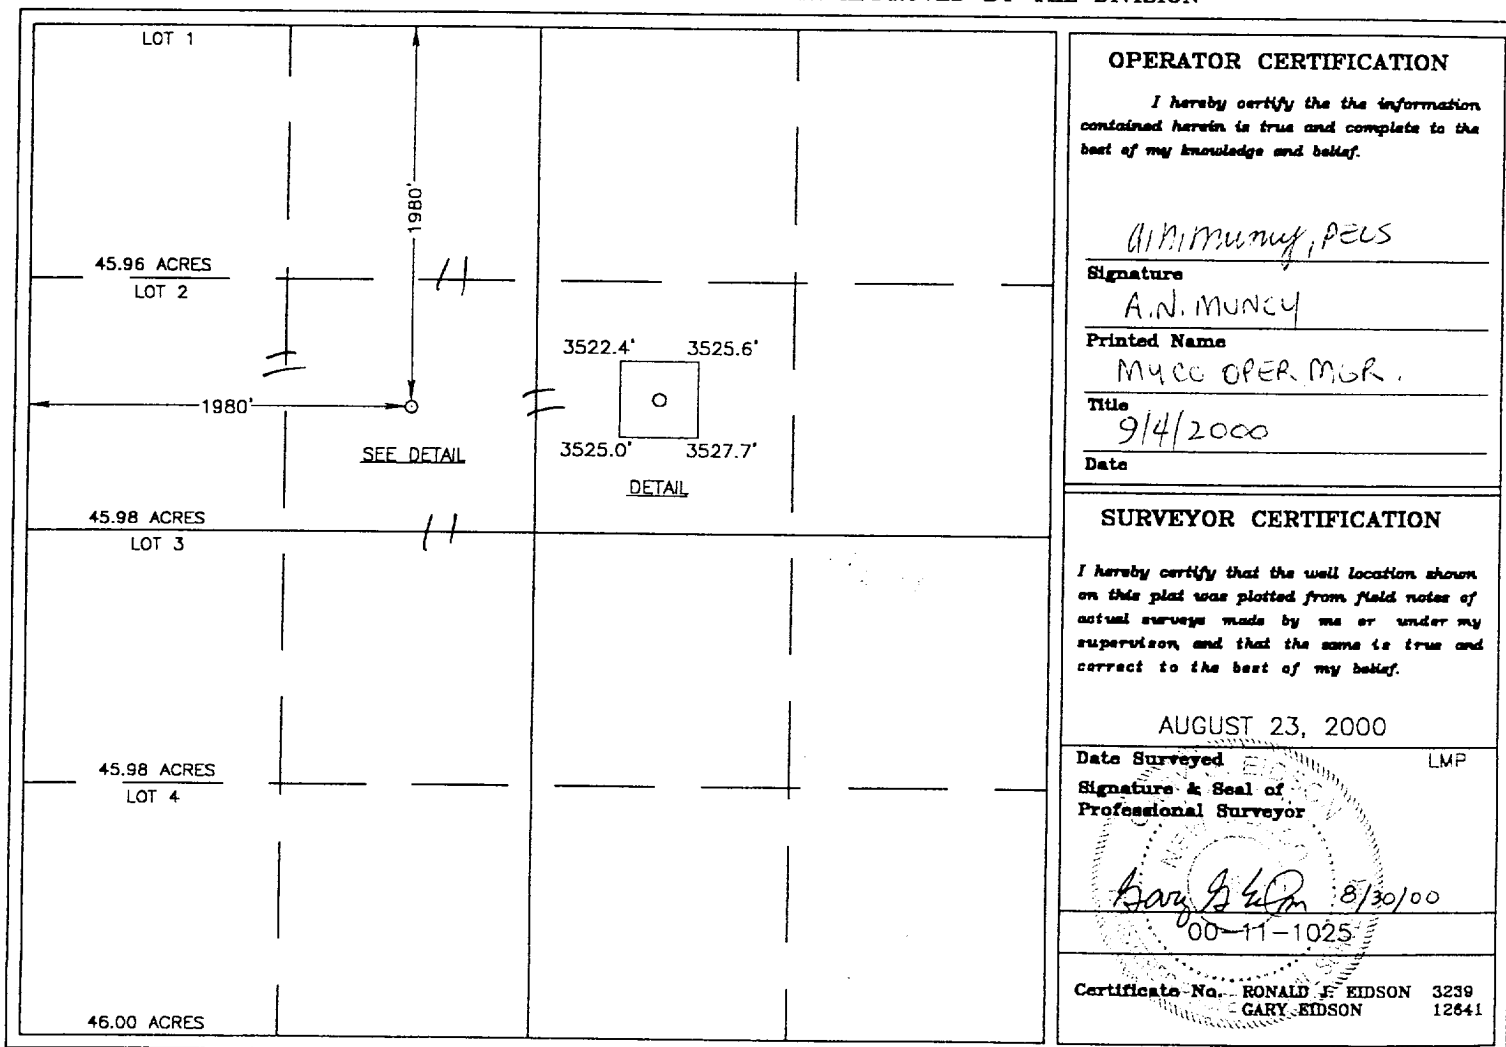 LOT 1
1980'
45.96 ACRES
LOT 2
3522.4' 3525.6'
1980'
SEE DETAIL
3525.0' 3527.7'
DETAIL
45.98 ACRES
LOT 3
45.98 ACRES
LOT 4
46.00 ACRES
OPERATOR CERTIFICATION
I hereby certify the the information
contained herein is true and complete to the
best of my knowledge and belief.
Signature
A.N. MUNCY
Printed Name
MYCO OPER. MGR.
Title
9/4/2000
Date
SURVEYOR CERTIFICATION
I hereby certify that the well location shown
on this plat was plotted from field notes of
actual surveys made by me or under my
supervison, and that the same is true and
correct to the best of my belief.
AUGUST 23, 2000
Date Surveyed LMP
Signature & Seal of
Professional Surveyor
8/30/00
00-11-1025
Certificate No. RONALD J. EIDSON 3239
GARY EIDSON 12641